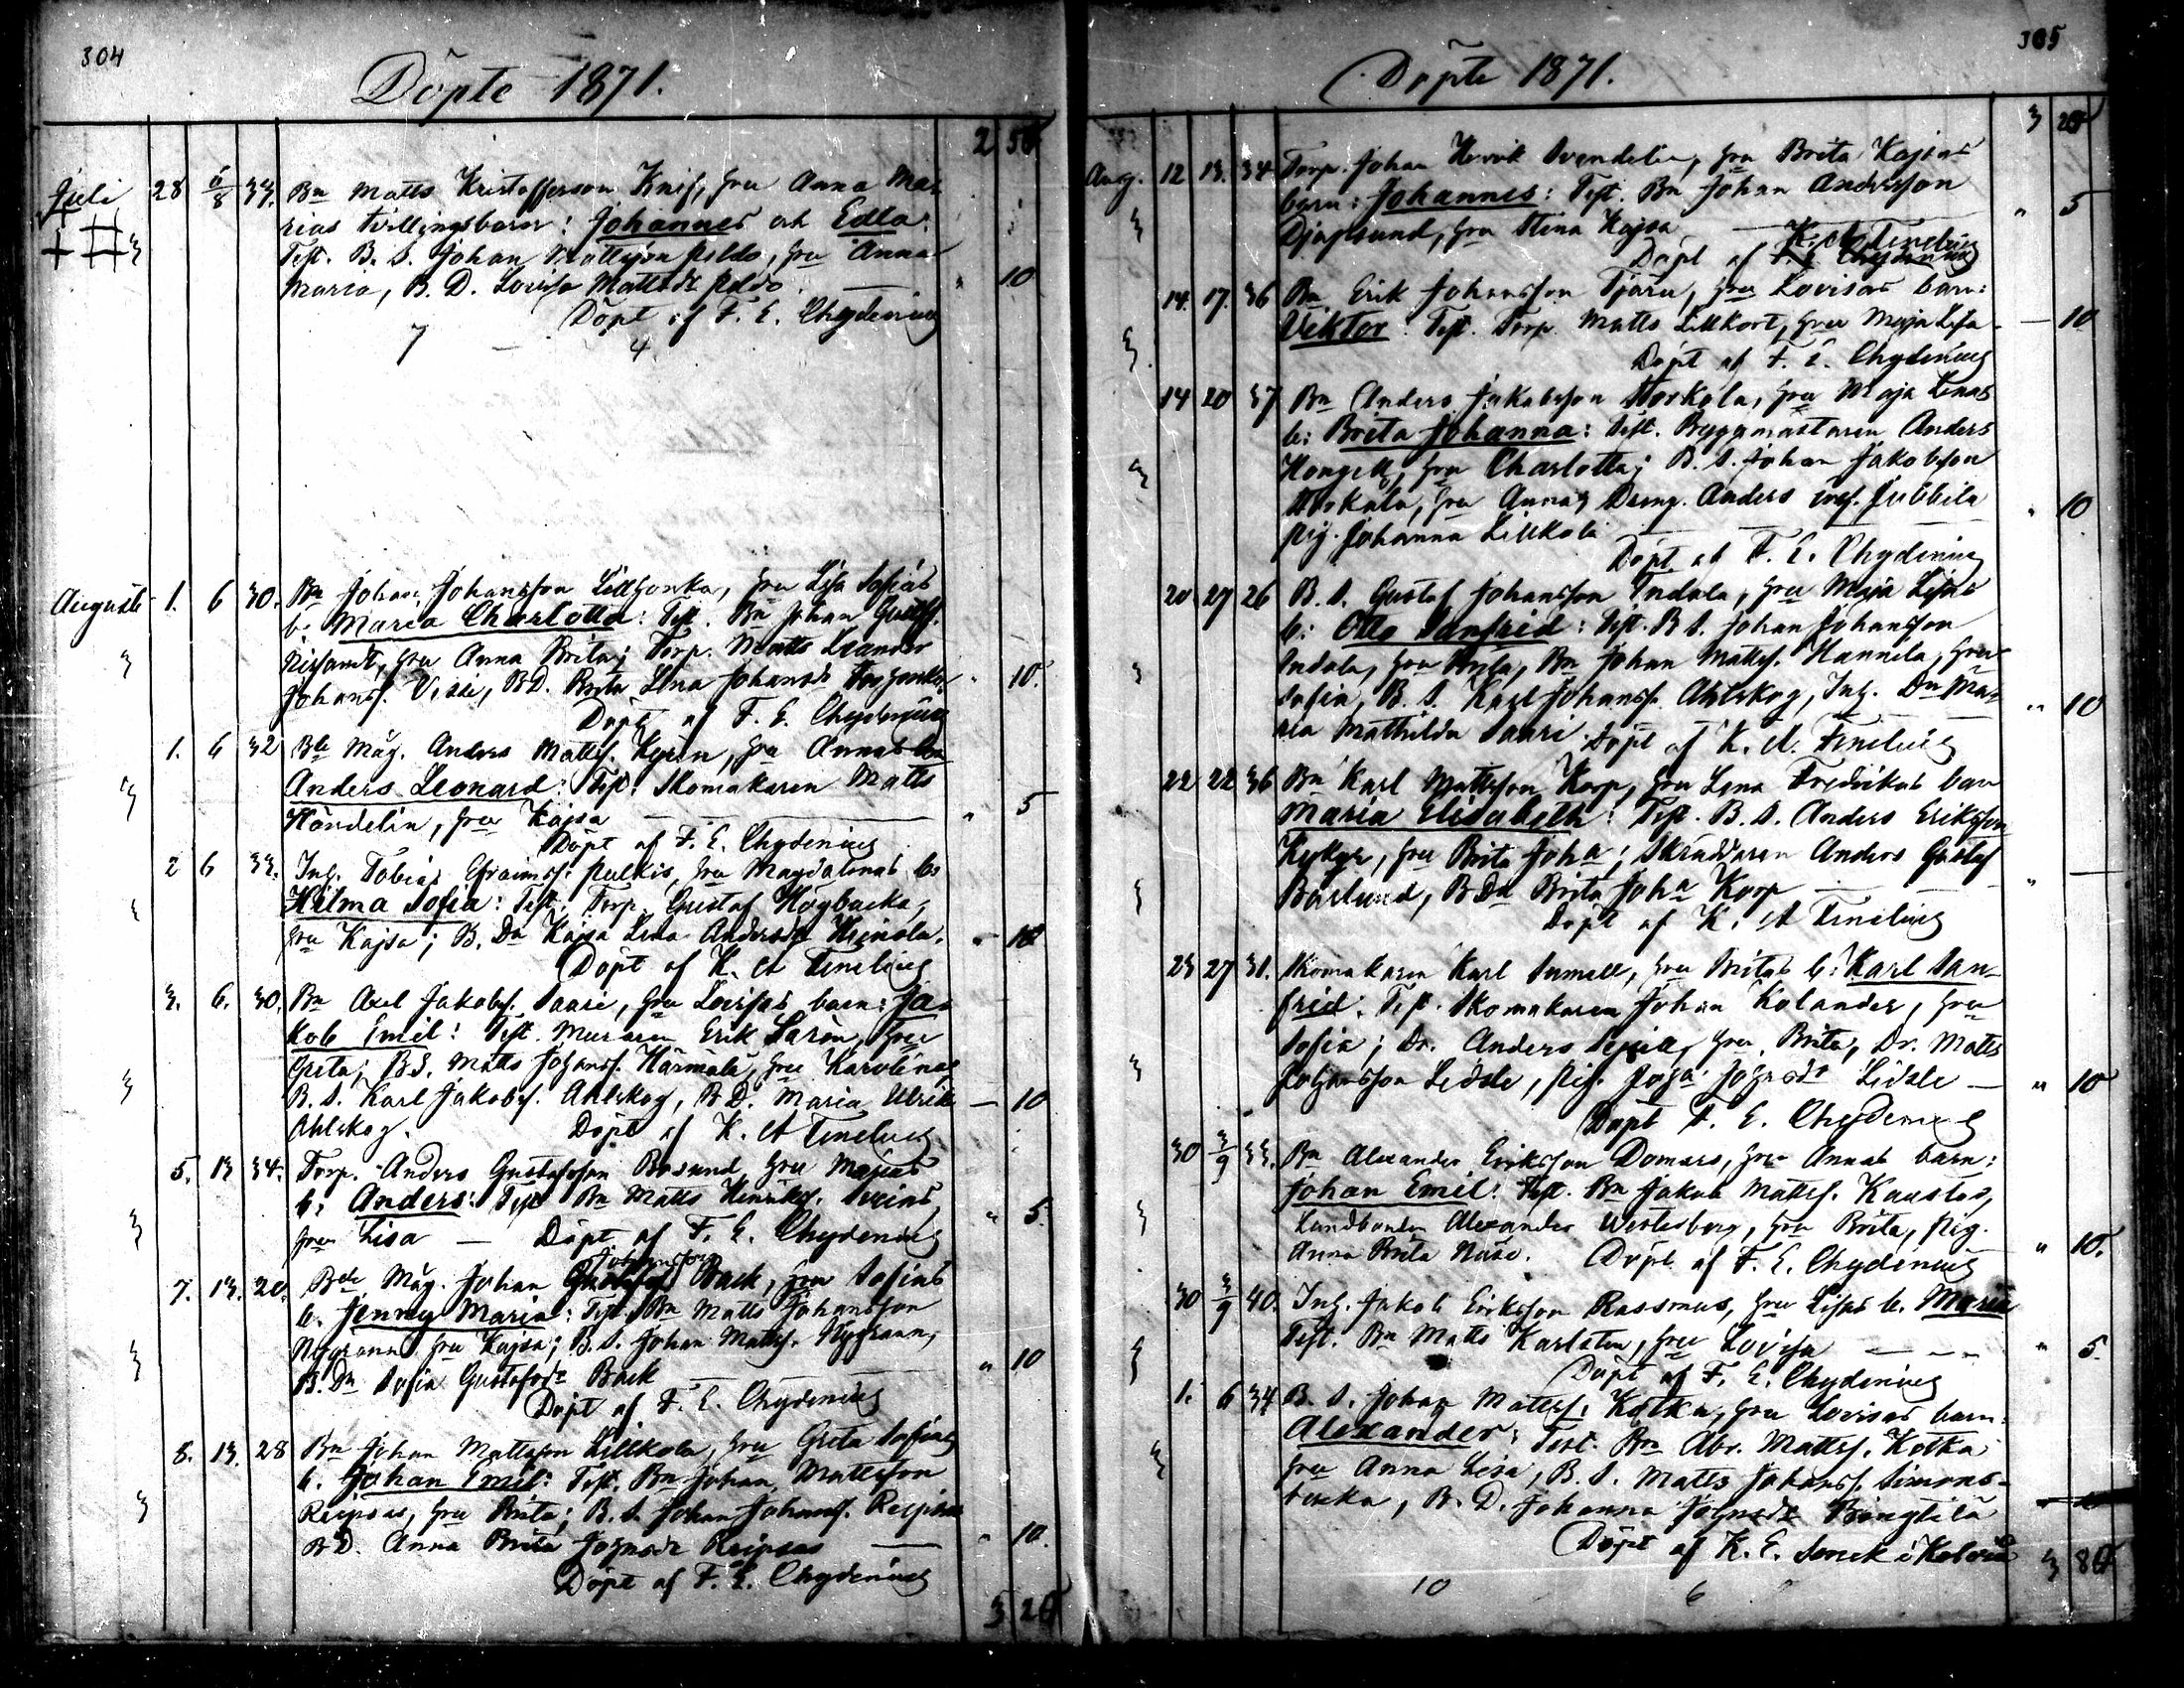 304
Döpte 1871.
2 50
Juli 28 6/8 33. Bn Matts Kristoffersson Knif, hru Anna Ma-
rias tvillingsbarn: Johannes och Edla:
Test. B. S. Johan Mattsson, hru Anna
Maria, B. D. Lovisa Mattsdr — " 10
Döpt af F. E. Chydenius
7 — 4
Augusti 1. 6 30. Bn Johan Johansson, hru Lisa Sofias
b. Maria Charlotta: Test. Bn Johan
hru Anna Brita; Torp. Matts Leander
Johanss. Vissi, BD. Brita Lena Johansdr " 10.
Döpt af F. E. Chydenius
1. 6 32 Bde Måg. Anders Matts. hru Annas
Anders Leonard: Test. Skomakaren Matts
Höndelin, hru Kajsa — " 5
Döpt af F. E. Chydenius
2 6 33. Inh. Tobias Efraimss. Pulkis, hru Magdalenas b:
Hilma Sofia: Test. Torp. Gustaf Högbacka,
hru Kajsa; B. Dn Kajsa Lena Andersdr " 10
Döpt af K. A Tenelius
3. 6. 30. Bn Axel Jakobss. Saari, hru Lovisas barn: Ja-
kob Emil: Test. Muraren Erik Sarin, hru
Greta; BS. Matts Johanss. Härmälä, hru Karolina,
B. S. Karl Jakobss. Ahlskog, BD. Maria Ulrika — 10
Ahlskog. Döpt af K. A Tenelius
5. 13 34. Torp. Anders Gustafsson Bosund, hru Majas
b: Anders: Test Bn Matts Henrikss.
hru Lisa — Döpt af F. E. Chydenius " 5.
Johansson
7. 13. 20. Bde Måg. Johan Back, hru Sofias
b. Jenny Maria: Test. Bn Matts Johansson
Nygrann hru Kajsa; B. S. Johan Mattss. Nygrann,
B. Dn Sofia Gustafsdr Back — " 10
Döpt af F. E. Chydenius
8. 13. 28 Bn Johan Mattsson Lillkola, hru Greta Sofias
b. Johan Emil: Test. Bn Johan Mattsson
Reipsas, hru Brita; B. S. Johan Johanss. Reipsas
BD. Anna Brita Johansdr Reipsas — " 10.
Döpt af F. E. Chydenius
3. 20
305
Döpte 1871.
3 20
Aug. 12 13. 34 Torp. Johan Henrik Svendelin, hru Brita Kajsas
barn: Johannes: Test. Bn Johan Andersson
Djupsund, hru Stina Kajsa — " 5
K. A Tenelius
Döpt af F. E. Chydenius
14. 17. 36 Bn Erik Johansson Tjäru, hru Lovisas barn:
Viktor: Test. Torp. Matts Lillkort, hru Maja Lisa — 10
Döpt af F. E. Chydenius
14 20 37 Bn Anders Jakobsson Storkola, hru Maja Lenas
b: Brita Johanna: Test. Byggmästaren Anders
Kongell, hru Charlotta; B. S. Johan Jakobsson
Storkola, hru Anna; Dreng. Anders
Pig. Johanna Lillkola — " 10
Döpt af F. E. Chydenius
20 27 26 B. S. Gustaf Johansson Indola, hru Maja Lisas
b: Otto Sanfrid: Test. B S. Johan Johansson
Indola, hru Brita, Bn Johan Mattss. Hannila, hru
Sofia, B. S. Karl Johanss. Ahlskog, Inh. Dn Ma-
ria Mathilda Saari. Döpt af K. A. Tenelius " 10
22 22 36 Bn Karl Mattsson Korp, hru Lena Fredrikas barn
Maria Elisabeth: Test. B. S. Anders Eriksson
hru Brita Joha; Skräddaren Anders Gustaf
Barlund, B Dn Brita Joha Korp — " —
Döpt af K. A Tenelius
23 27 31. Skomakaren Karl, hru Britas b: Karl San-
frid: Test. Skomakaren Johan Kolander, hru
Sofia; Dr. Anders, hru Brita, Dr. Matts
Johansson, Pig. Joha Johansdr — " 10
Döpt F. E. Chydenius
30 3/9 33. Bn Alexander Eriksson Domars, hru Annas barn:
Johan Emil: Test. Bn Jakob Mattss. Kaustar,
Landbonden Alexander Westerberg, hru Brita, Pig.
Anna Brita Näse. Döpt af F. E. Chydenius " 10.
30 3/9 40. Inh. Jakob Eriksson Rassmus, hru Lisas b. Maria
Test. Bn Matts Karlsten, hru Lovisa — " 5.
Döpt af F. E. Chydenius
1. 6 34 B. S. Johan Mattss. Kotka, hru Lovisas barn:
Alexander: Test. Bn Abr. Mattss. Kotka
hru Anna Lisa, B. S. Matts Johanss. Simons-
backa, B. D. Johanna Johansdr
Döpt af K. E.
10 6
3 80